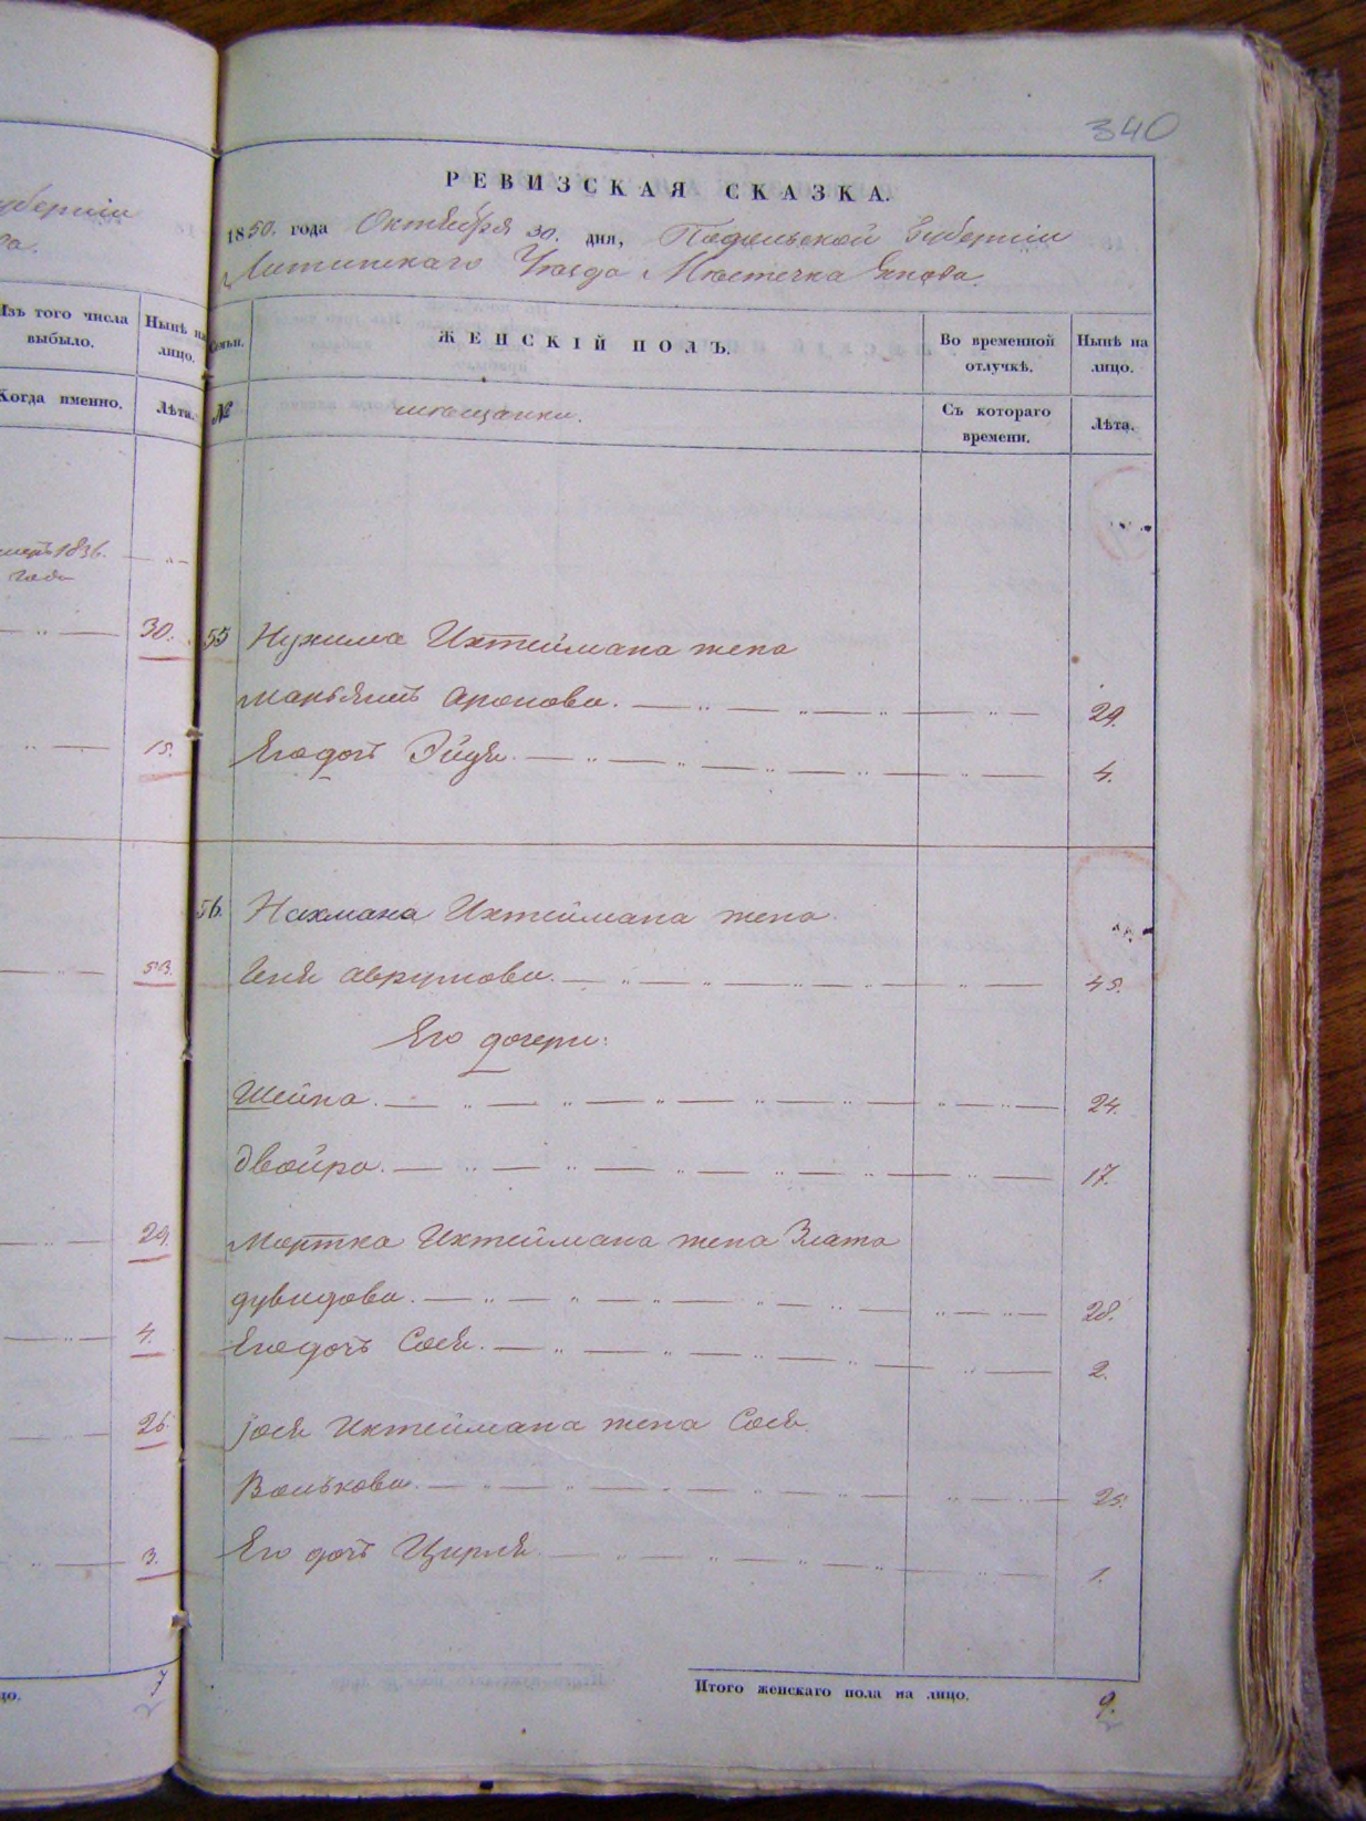 340
РЕВИЗСКАЯ СКАЗКА.
1850. года Октября 30. дня, Подольской Губерніи
Литинскаго Уѣзда Мѣстечка Янова.
Семьи.
ЖЕНСКІЙ ПОЛЪ.
Во временной отлучкѣ.
Нынѣ на лицо.
№
мѣщанки.
Съ котораго времени.
Лѣта.
55 Нухима Ихтеймана жена
Марьямъ Аронова. 29.
Его дочь Эйдя. 4.
56. Нахмана Ихтеймана жена
Геня Аврумова. 45.
Его дочери:
Шейна. 24.
Двойра. 17.
Мортка Ихтеймана жена Злата
Дувидова. 28.
Его дочь Сося. 2.
Іося Ихтеймана жена Сося
Волькова. 25.
Его дочь Цирля 1.
Итого женскаго пола на лицо. 9.
губерніи
Изъ того числа выбыло.
Нынѣ на лицо.
Когда именно.
Лѣта.
1836.
года
30.
15.
53.
29.
4.
26.
3.
7